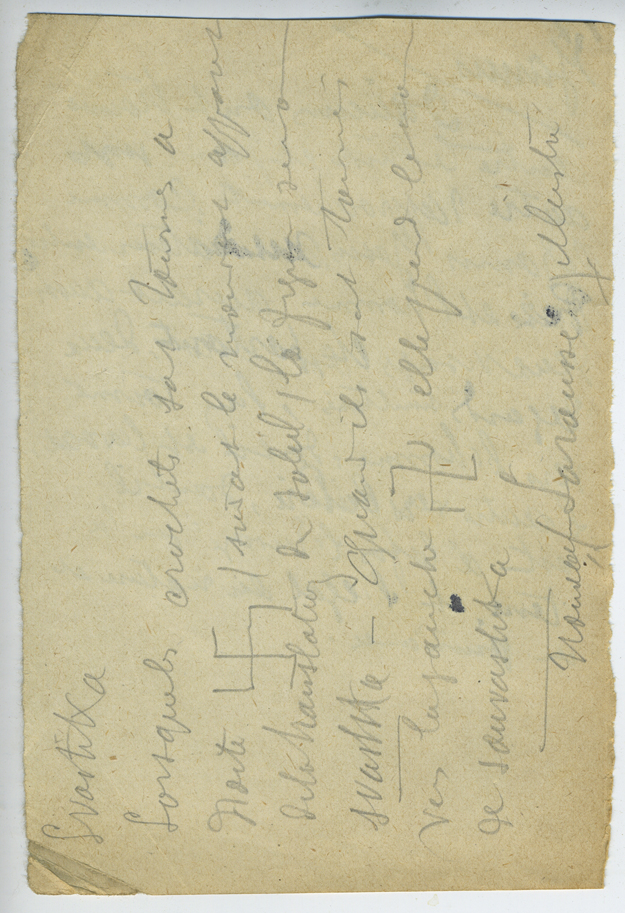 Svastika
Lorsque les crochets sont tournés à
droite 卐 (suivant le mouvement apparent
de la translation du soleil) la figure sera
svastika — Quand ils sont tournés
vers la gauche 卍 elle prend le nom
de sauvastika
Nouveau Larousse illustré